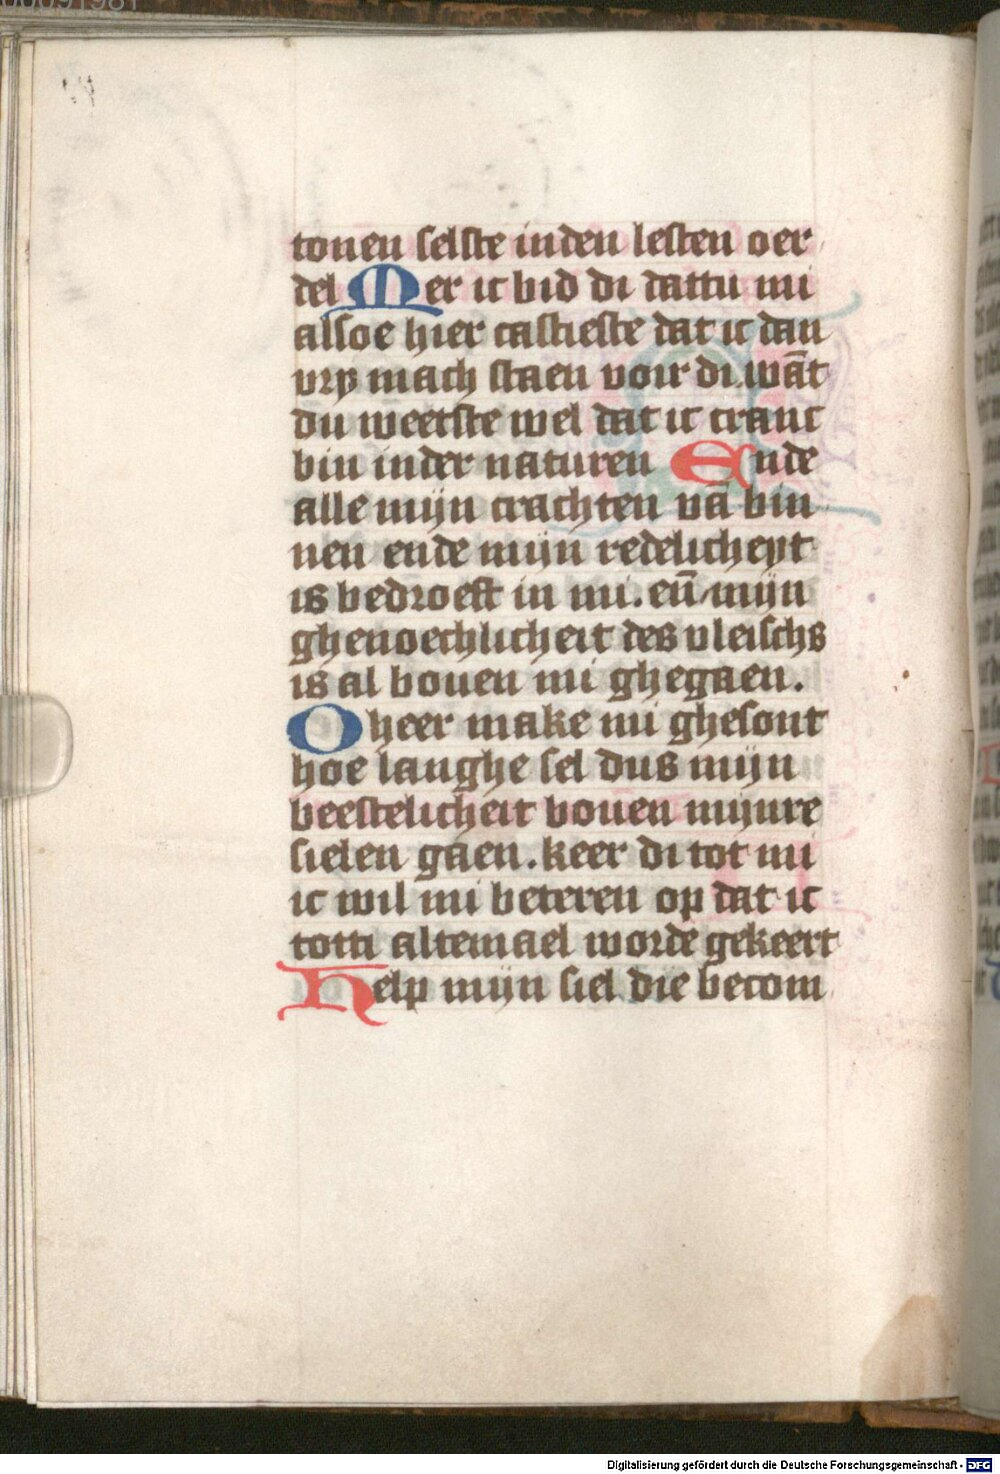 tonen selste inden lesten oer
del Mer ic bid di dattu mi
alsoe hier castieste dat ic dan
vry mach staen voir di. wāt
du weetste wel dat ic cranc
bin inder naturen Ende
alle mijn crachten vā bin
nen ende mijn redelicheyt
is bedroeft in mi. en̄ mijn
ghenoechlicheit des vleischs
is al bouen mi ghegaen.
O heer make mi ghesont
hoe langhe sel dus mijn
beestelicheit bouen mijnre
sielen gaen. keer di tot mi
ic wil mi beteren op dat ic
totti altemael worde gekeert
Help mijn siel die becom
Digitalisierung gefördert durch die Deutsche Forschungsgemeinschaft - DFG